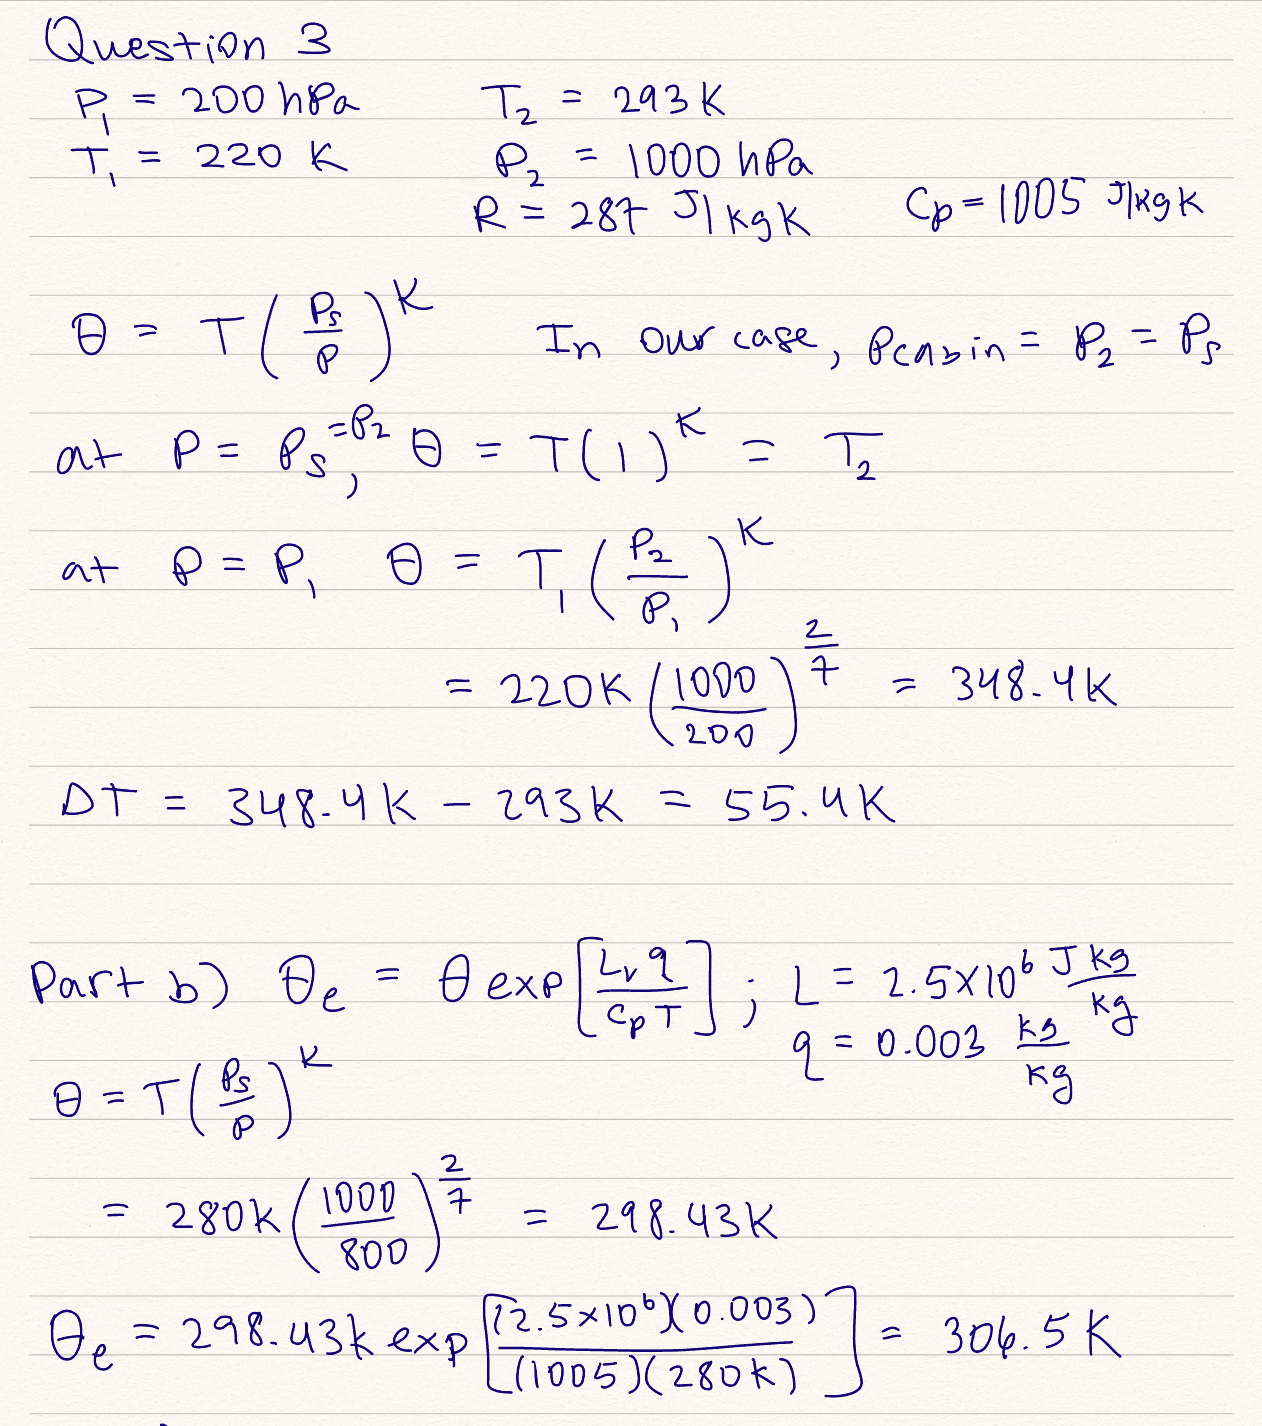 Question 3
P₁ = 200 hPa T₂ = 293 K
T₁ = 220 K P₂ = 1000 hPa
R = 287 J/kgK Cp = 1005 J/kgK
θ = T(Ps/P)^K In our case, Pcabin = P₂ = Ps
at P = Ps = P₂, θ = T(1)^K = T₂
at P = P₁ θ = T₁(P₂/P₁)^K
= 220K(1000/200)^(2/7) = 348.4K
ΔT = 348.4K − 293K = 55.4K
Part b) θe = θ exp[Lv q/Cp T]; L = 2.5×10⁶ J kg/kg
q = 0.003 kg/kg
θ = T(Ps/P)^K
= 280K(1000/800)^(2/7) = 298.43K
θe = 298.43K exp[(2.5×10⁶)(0.003)/(1005)(280K)] = 306.5K